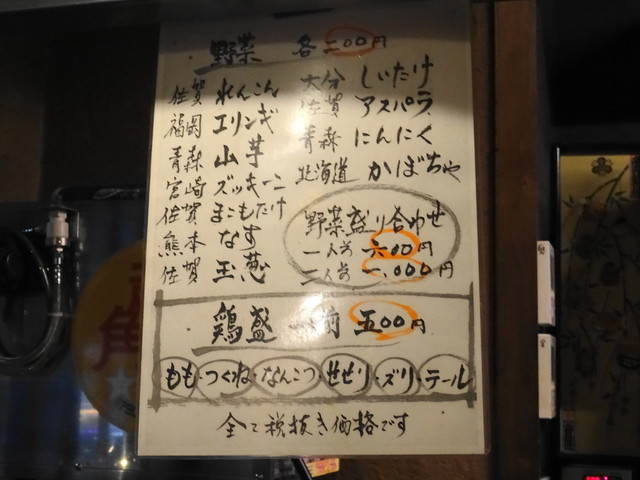 野菜 各二〇〇円
佐賀 れんこん
福岡 エリンギ
青森 山芋
宮崎 ズッキーニ
佐賀 まこもたけ
熊本 なす
佐賀 玉葱
大分 しいたけ
佐賀 アスパラ
青森 にんにく
北海道 かぼちゃ
野菜盛り合わせ
一人前 六〇〇円
二人前 一,〇〇〇円
鶏盛 一人前 五〇〇円
もも・つくね・なんこつ・せせり・ズリ・テール
全て税抜き価格です
角